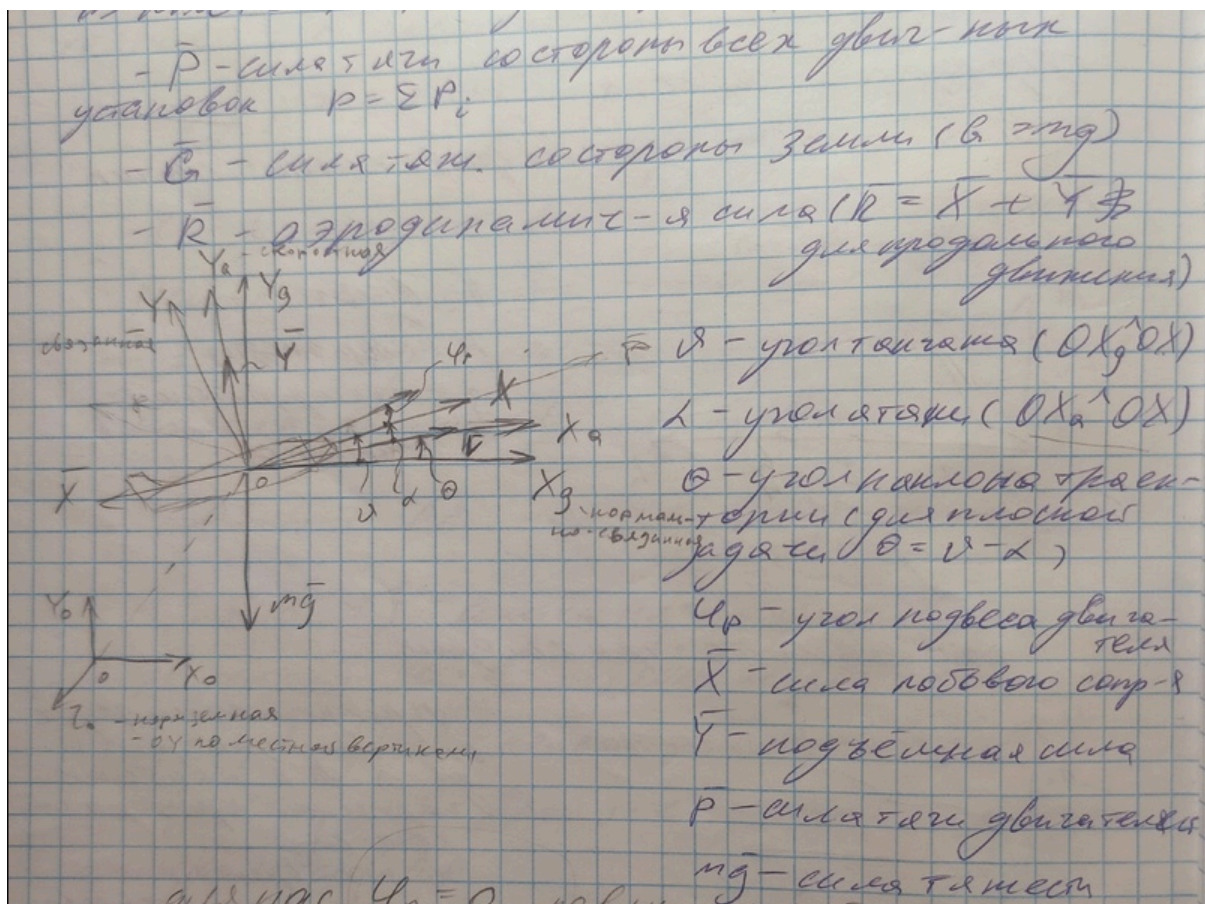 - P̄ - сила тяги со стороны всех двиг-ных
установок P = ΣPᵢ
- Ḡ - сила тяж. со стороны Земли (G = mg)
- R̄ - аэродинамич-я сила (R̄ = X̄ + Ȳ
для продольного
движения)
Yₐ - скоростная
Y
Y_g
связанная
Ȳ
φₚ
P̄
X
Xₐ
V̄
X̄
O
ϑ
α
θ
X_g - нормаль-
но-связанная
mḡ
Y₀
O
X₀
Z₀ - нормземная
- OY по местной вертикали
ϑ - угол тангажа (OX_g^OX)
α - угол атаки (OXₐ^OX)
θ - угол наклона траек-
тории (для плоской
задачи θ = ϑ - α)
φₚ - угол подвеса двига-
теля
X̄ - сила лобового сопр-я
Ȳ - подъёмная сила
P̄ - сила тяги
mḡ - сила тяжести
для нас φₚ = 0